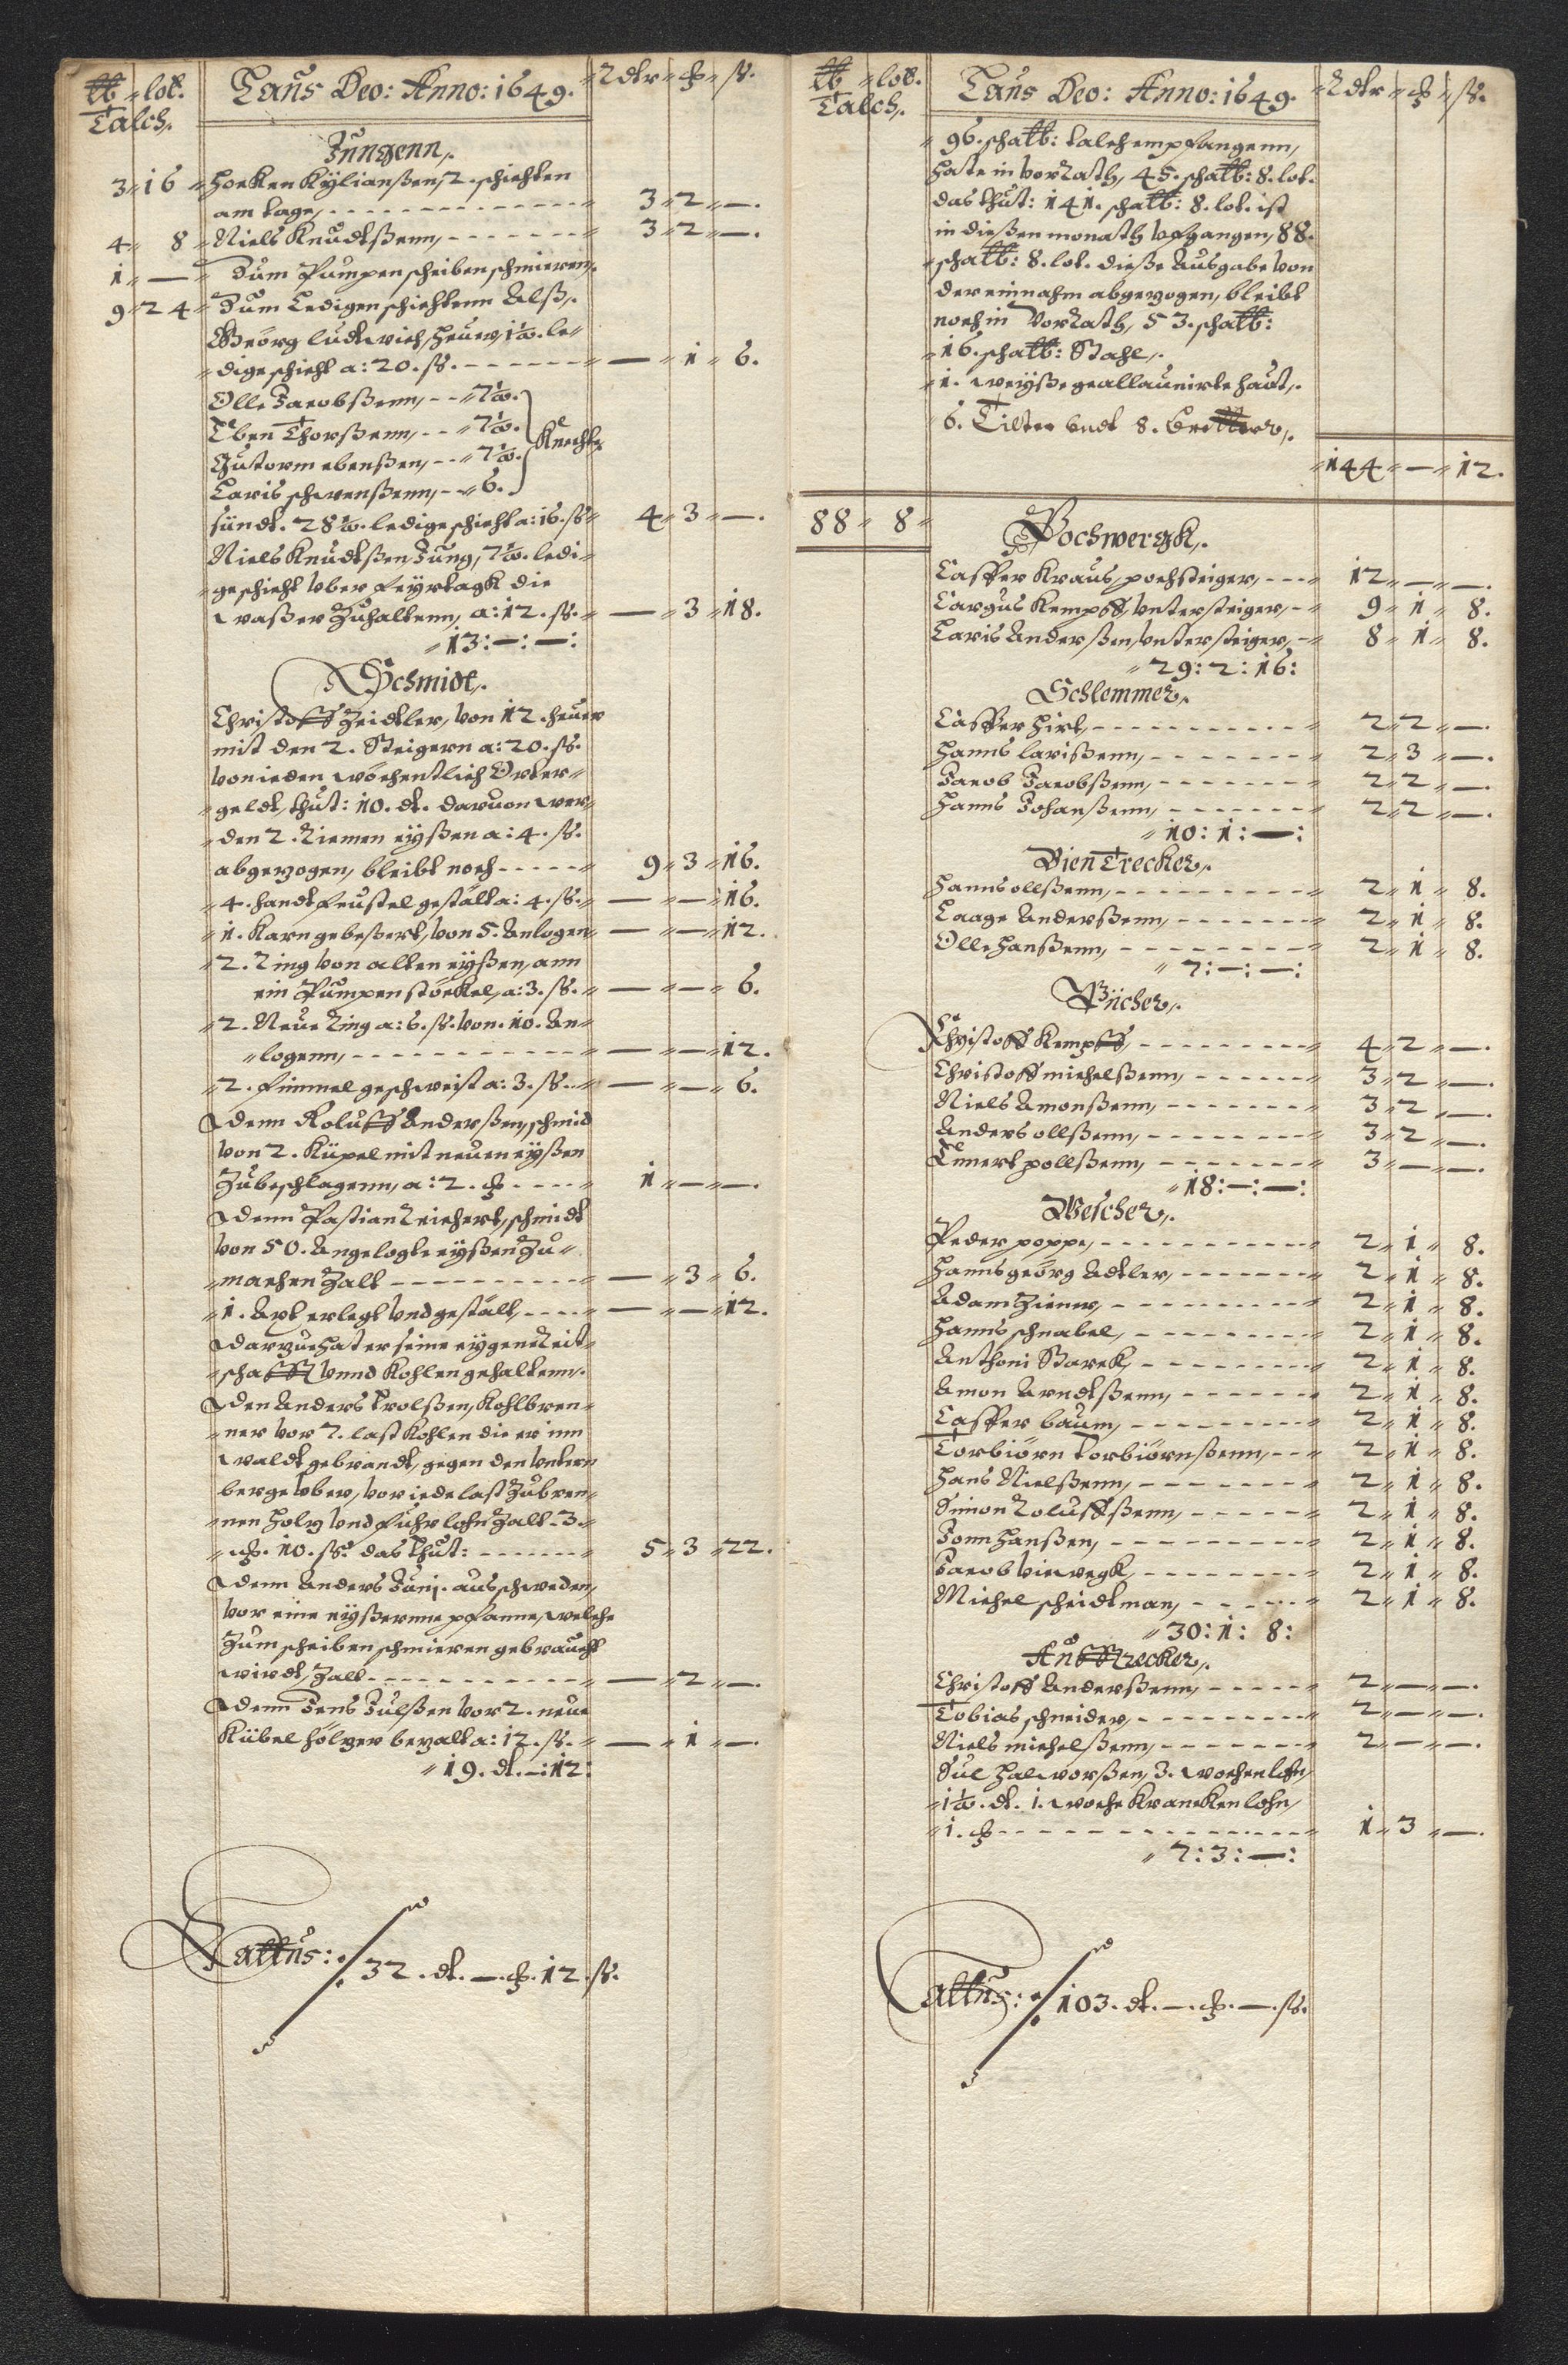 ℔ lot. Laus Deo: Anno: 1649. Rdlr ß.
Talch.
Jungenn,.
3 16 Hocken Kÿlianßen, 2. schichten
am tage, 3 2 —.
4 8 Niels Knudtßenn, 3 2 —.
1 — Zum Pumpen scheiben schmieren,.
9 24 Zum Ledigen schichtenn Alß,.
Geörg ludtwich, Heuer, 1½. le-
dige schicht a: 20. ß. — 1 6.
Olle Jacobßenn, 7½.
Eben Thorßenn, 7½. Knechte
Gutorm ebenßen, 7½.
Laris schwenßenn, 6.
sündt. 28½. ledige schicht a: 16. ß 4 3 —.
Niels Knudtßen Jung, 7½. ledi-
ge schicht vber feÿrtagk die
waßer Zuhaltenn, a: 12. ß. — 3 18.
13: —: —:
Schmidt,.
Christoff Zeidtler, von 12. heuer
mit den 2. Steigern a: 20. ß.
von ieden wöchentlich Örter-
geldt, thut: 10. dt. daruon wer-
den 2. Riemen eÿßen a: 4. ß.
abgezogen, bleibt noch 9 3 16.
4. handt feustel gestält a: 4. ß. — — 16.
1. Karn gebeßert, von 5. Anlogen — — 12.
2. Ring von alten eÿßen, ann
ein Pumpen stöckel, a: 3. ß. — — 6.
2. Neue Ring a: 6. ß. von. 10. An-
logenn, — — 12.
2. fimmel geschweist a: 3. ß. — — 6.
denn Roluff Anderßen, schmid
von 2. Küpel mit neuen eÿßen
Zubeschlagenn, a: 2. 1 — —.
denn Pastian Reichert, schmidt
von 50. Angelogte eÿßen Zu-
machen Zalt — 3 6.
1. Axt erlegt vnd gestält, — — 12.
darzue hat er seine eÿgene Zeit-
schafft vnnd Kohlen gehaltenn,.
den Anders Trolßen, Kohlbren-
ner vor 7. last Kohlen die er inn
waldt gebrandt, gegen den vntern
berge vber, vor iede last Zubren-
nen holtz vnd fuhrlohn Zalt 3.
10. ß. das thut: 5 3 22.
denn Anders Junj. aus schweden,
vor eine eÿßernne pfanne, welche
Zum scheiben schmieren gebraucht
wirdt, Zalt — 2 —.
denn Jens Julßen vor 2. neue
Kübel höltzer bezalt a: 12. ß. — 1 —.
19. dt. —: 12:
Lattus: 32. dt. —. 12. ß.
℔ lot. Laus Deo: Anno: 1649. Rdlr ß.
Talch,.
96. scha℔: talch empfangenn,
hate in vorRath, 45. scha℔: 8. lot.
das thut: 141. scha℔: 8. lot. ist
in dießen monath vfgangen, 88.
scha℔: 8. lot. dieße Ausgabe von
der einnahm abgezogen, bleibt
noch in VorRath, 53. scha℔:
16. scha℔: Stahl,.
1. weÿße geallaunirte haut,.
6. Tilter vndt 8. bretter,.
144 — 12.
88 8
Pochwergk,.
Casper Kraus, pochsteiger, 12 — —.
Cargus Kempff, vntersteiger, 9 1 8.
Laris Anderßen, vntersteiger, 8 1 8.
29: 2: 16:
Schlemmer,.
Casper Hirt, 2 2 —.
Hanns larißenn, 2 3 —.
Jacob Jacobßenn, 2 2 —.
Hanns Johanßenn, 2 2 —.
10: 1: —:
BienTrecker,.
Hanns ollßenn, 2 1 8.
Laage Anderßenn, 2 1 8.
Olle Hanßenn, 2 1 8.
7: —: —:
Pücher,.
Christoff Kempff 4 2 —.
Christoff michelßenn, 3 2 —.
Niels Amonßenn, 3 2 —.
Anders ollßenn, 3 2 —.
Einert pollßenn, 3 — —.
18: —: —:
Wescher,.
Peder poppe, 2 1 8.
Hanns geörg Adtler, 2 1 8.
Adam Ziener, 2 1 8.
Hanns schnabel, 2 1 8.
Anthoni Starck, 2 1 8.
Amon Arndtßenn, 2 1 8.
Casper baum, 2 1 8.
Torbiörn Torbiörnßenn, 2 1 8.
Hans Nielßenn, 2 1 8.
Simon Roluffßenn, 2 1 8.
Jonn Hanßen, 2 1 8.
Jacob vierwegk, 2 1 8.
Michel scheidtman, 2 1 8.
30: 1: 8:
AuffTrecker,.
Christoff Anderßenn, 2 — —.
Tobias schneider, 2 — —.
Niels michelßenn, 2 — —.
Jul Halworßen, 3. wochen lohn,
1½. dt. 1. woche Krancken lohn,
1. 1 3 —.
7: 3: —:
Lattus: 103. dt. —. —. ß.